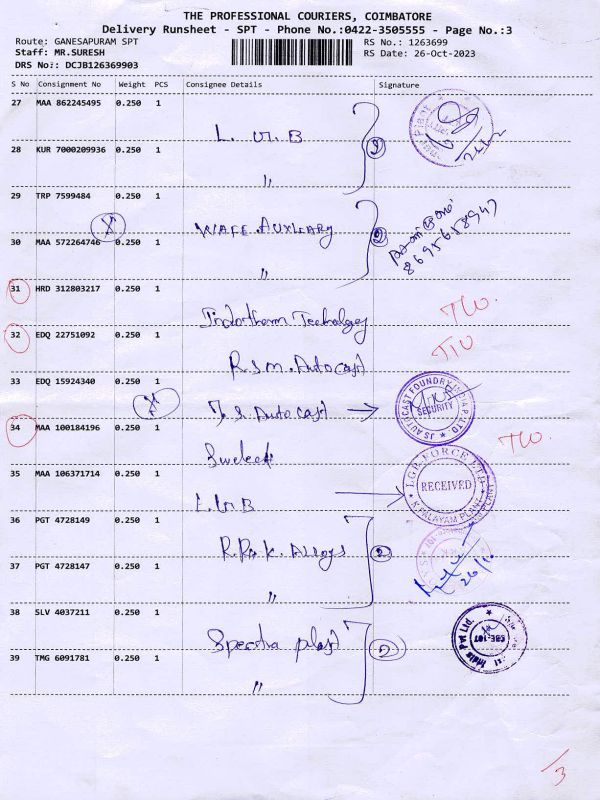 THE PROFESSIONAL COURIERS, COIMBATORE
Delivery Runsheet - SPT - Phone No.:0422-3505555 - Page No.:3
Route: GANESAPURAM SPT RS No.: 1263699
Staff: MR.SURESH RS Date: 26-Oct-2023
DRS No.: DCJB126369903
S No Consignment No Weight PCS Consignee Details Signature
27 MAA 862245495 0.250 1
L. G. B
28 KUR 7000209936 0.250 1
"
29 TRP 7599484 0.250 1
8695658947
30 MAA 572264746 0.250 1
"
31 HRD 312803217 0.250 1
Indotherm Technology
32 EDQ 22751092 0.250 1
R.S.M. Autocast
33 EDQ 15924340 0.250 1
J. S. Autocast → JS AUTOCAST FOUNDRY INDIA P. LTD. SECURITY
34 MAA 100184196 0.250 1
35 MAA 106371714 0.250 1
L.G.B → L.G.B. FORGE LTD RECEIVED K PALAYAM PLANT
36 PGT 4728149 0.250 1
R.R.K. Alloys 2
37 PGT 4728147 0.250 1
"
38 SLV 4037211 0.250 1
Spectra plast 2
39 TMG 6091781 0.250 1
"
3